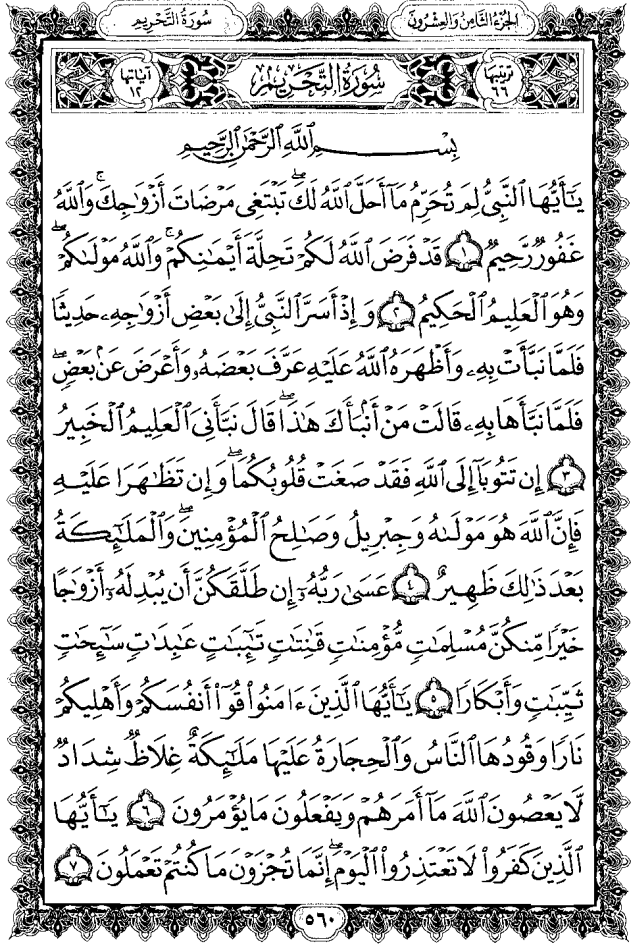 سُورَةُ التَّحْرِيمِ
الجُزْءُ الثَّامِنُ وَالعِشْرُونَ
ترتيبها ٦٦
سُورَةُ التَّحْرِيمِ
آياتها ١٢
بِسْمِ ٱللَّهِ ٱلرَّحْمَٰنِ ٱلرَّحِيمِ
يَٰٓأَيُّهَا ٱلنَّبِيُّ لِمَ تُحَرِّمُ مَآ أَحَلَّ ٱللَّهُ لَكَ ۖ تَبْتَغِى مَرْضَاتَ أَزْوَٰجِكَ ۚ وَٱللَّهُ
غَفُورٌ رَّحِيمٌ ١ قَدْ فَرَضَ ٱللَّهُ لَكُمْ تَحِلَّةَ أَيْمَٰنِكُمْ ۚ وَٱللَّهُ مَوْلَىٰكُمْ ۖ
وَهُوَ ٱلْعَلِيمُ ٱلْحَكِيمُ ٢ وَإِذْ أَسَرَّ ٱلنَّبِيُّ إِلَىٰ بَعْضِ أَزْوَٰجِهِۦ حَدِيثًا
فَلَمَّا نَبَّأَتْ بِهِۦ وَأَظْهَرَهُ ٱللَّهُ عَلَيْهِ عَرَّفَ بَعْضَهُۥ وَأَعْرَضَ عَنۢ بَعْضٍ ۖ
فَلَمَّا نَبَّأَهَا بِهِۦ قَالَتْ مَنْ أَنۢبَأَكَ هَٰذَا ۖ قَالَ نَبَّأَنِىَ ٱلْعَلِيمُ ٱلْخَبِيرُ
٣ إِن تَتُوبَآ إِلَى ٱللَّهِ فَقَدْ صَغَتْ قُلُوبُكُمَا ۖ وَإِن تَظَٰهَرَا عَلَيْهِ
فَإِنَّ ٱللَّهَ هُوَ مَوْلَىٰهُ وَجِبْرِيلُ وَصَٰلِحُ ٱلْمُؤْمِنِينَ ۖ وَٱلْمَلَٰٓئِكَةُ
بَعْدَ ذَٰلِكَ ظَهِيرٌ ٤ عَسَىٰ رَبُّهُۥٓ إِن طَلَّقَكُنَّ أَن يُبْدِلَهُۥٓ أَزْوَٰجًا
خَيْرًا مِّنكُنَّ مُسْلِمَٰتٍ مُّؤْمِنَٰتٍ قَٰنِتَٰتٍ تَٰٓئِبَٰتٍ عَٰبِدَٰتٍ سَٰٓئِحَٰتٍ
ثَيِّبَٰتٍ وَأَبْكَارًا ٥ يَٰٓأَيُّهَا ٱلَّذِينَ ءَامَنُوا۟ قُوٓا۟ أَنفُسَكُمْ وَأَهْلِيكُمْ
نَارًا وَقُودُهَا ٱلنَّاسُ وَٱلْحِجَارَةُ عَلَيْهَا مَلَٰٓئِكَةٌ غِلَاظٌ شِدَادٌ
لَّا يَعْصُونَ ٱللَّهَ مَآ أَمَرَهُمْ وَيَفْعَلُونَ مَا يُؤْمَرُونَ ٦ يَٰٓأَيُّهَا
ٱلَّذِينَ كَفَرُوا۟ لَا تَعْتَذِرُوا۟ ٱلْيَوْمَ ۖ إِنَّمَا تُجْزَوْنَ مَا كُنتُمْ تَعْمَلُونَ ٧
٥٦٠